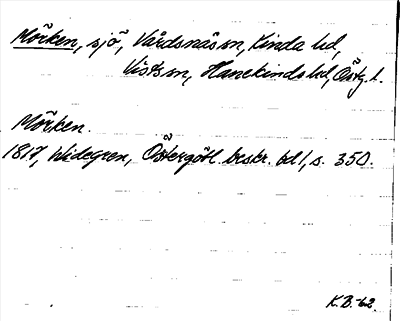 Mörken, sjö, Vårdsnäs sn, Kinda hd,
Vists sn, Hanekinds hd, Östg. l.
Mörken.
1817, Widegren, Östergötl. beskr. bd 1, s. 350.
K.B.-62